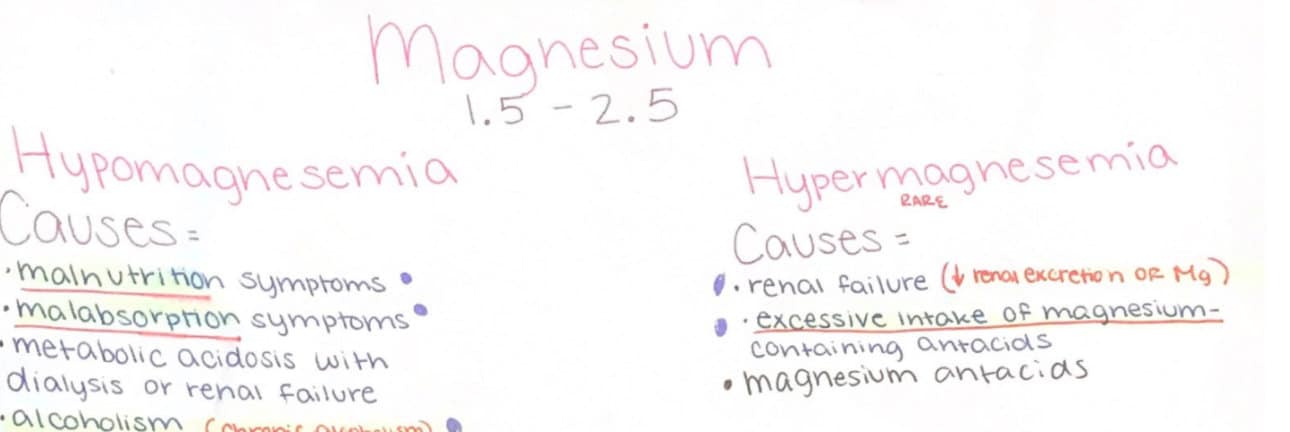 Magnesium
1.5 - 2.5
Hypomagnesemia
Causes =
• malnutrition symptoms •
• malabsorption symptoms •
• metabolic acidosis with
dialysis or renal failure
• alcoholism (chronic alcoholism) •
Hypermagnesemia
RARE
Causes =
• renal failure (↓ renal excretion OF Mg)
• excessive intake of magnesium-
containing antacids
• magnesium antacids